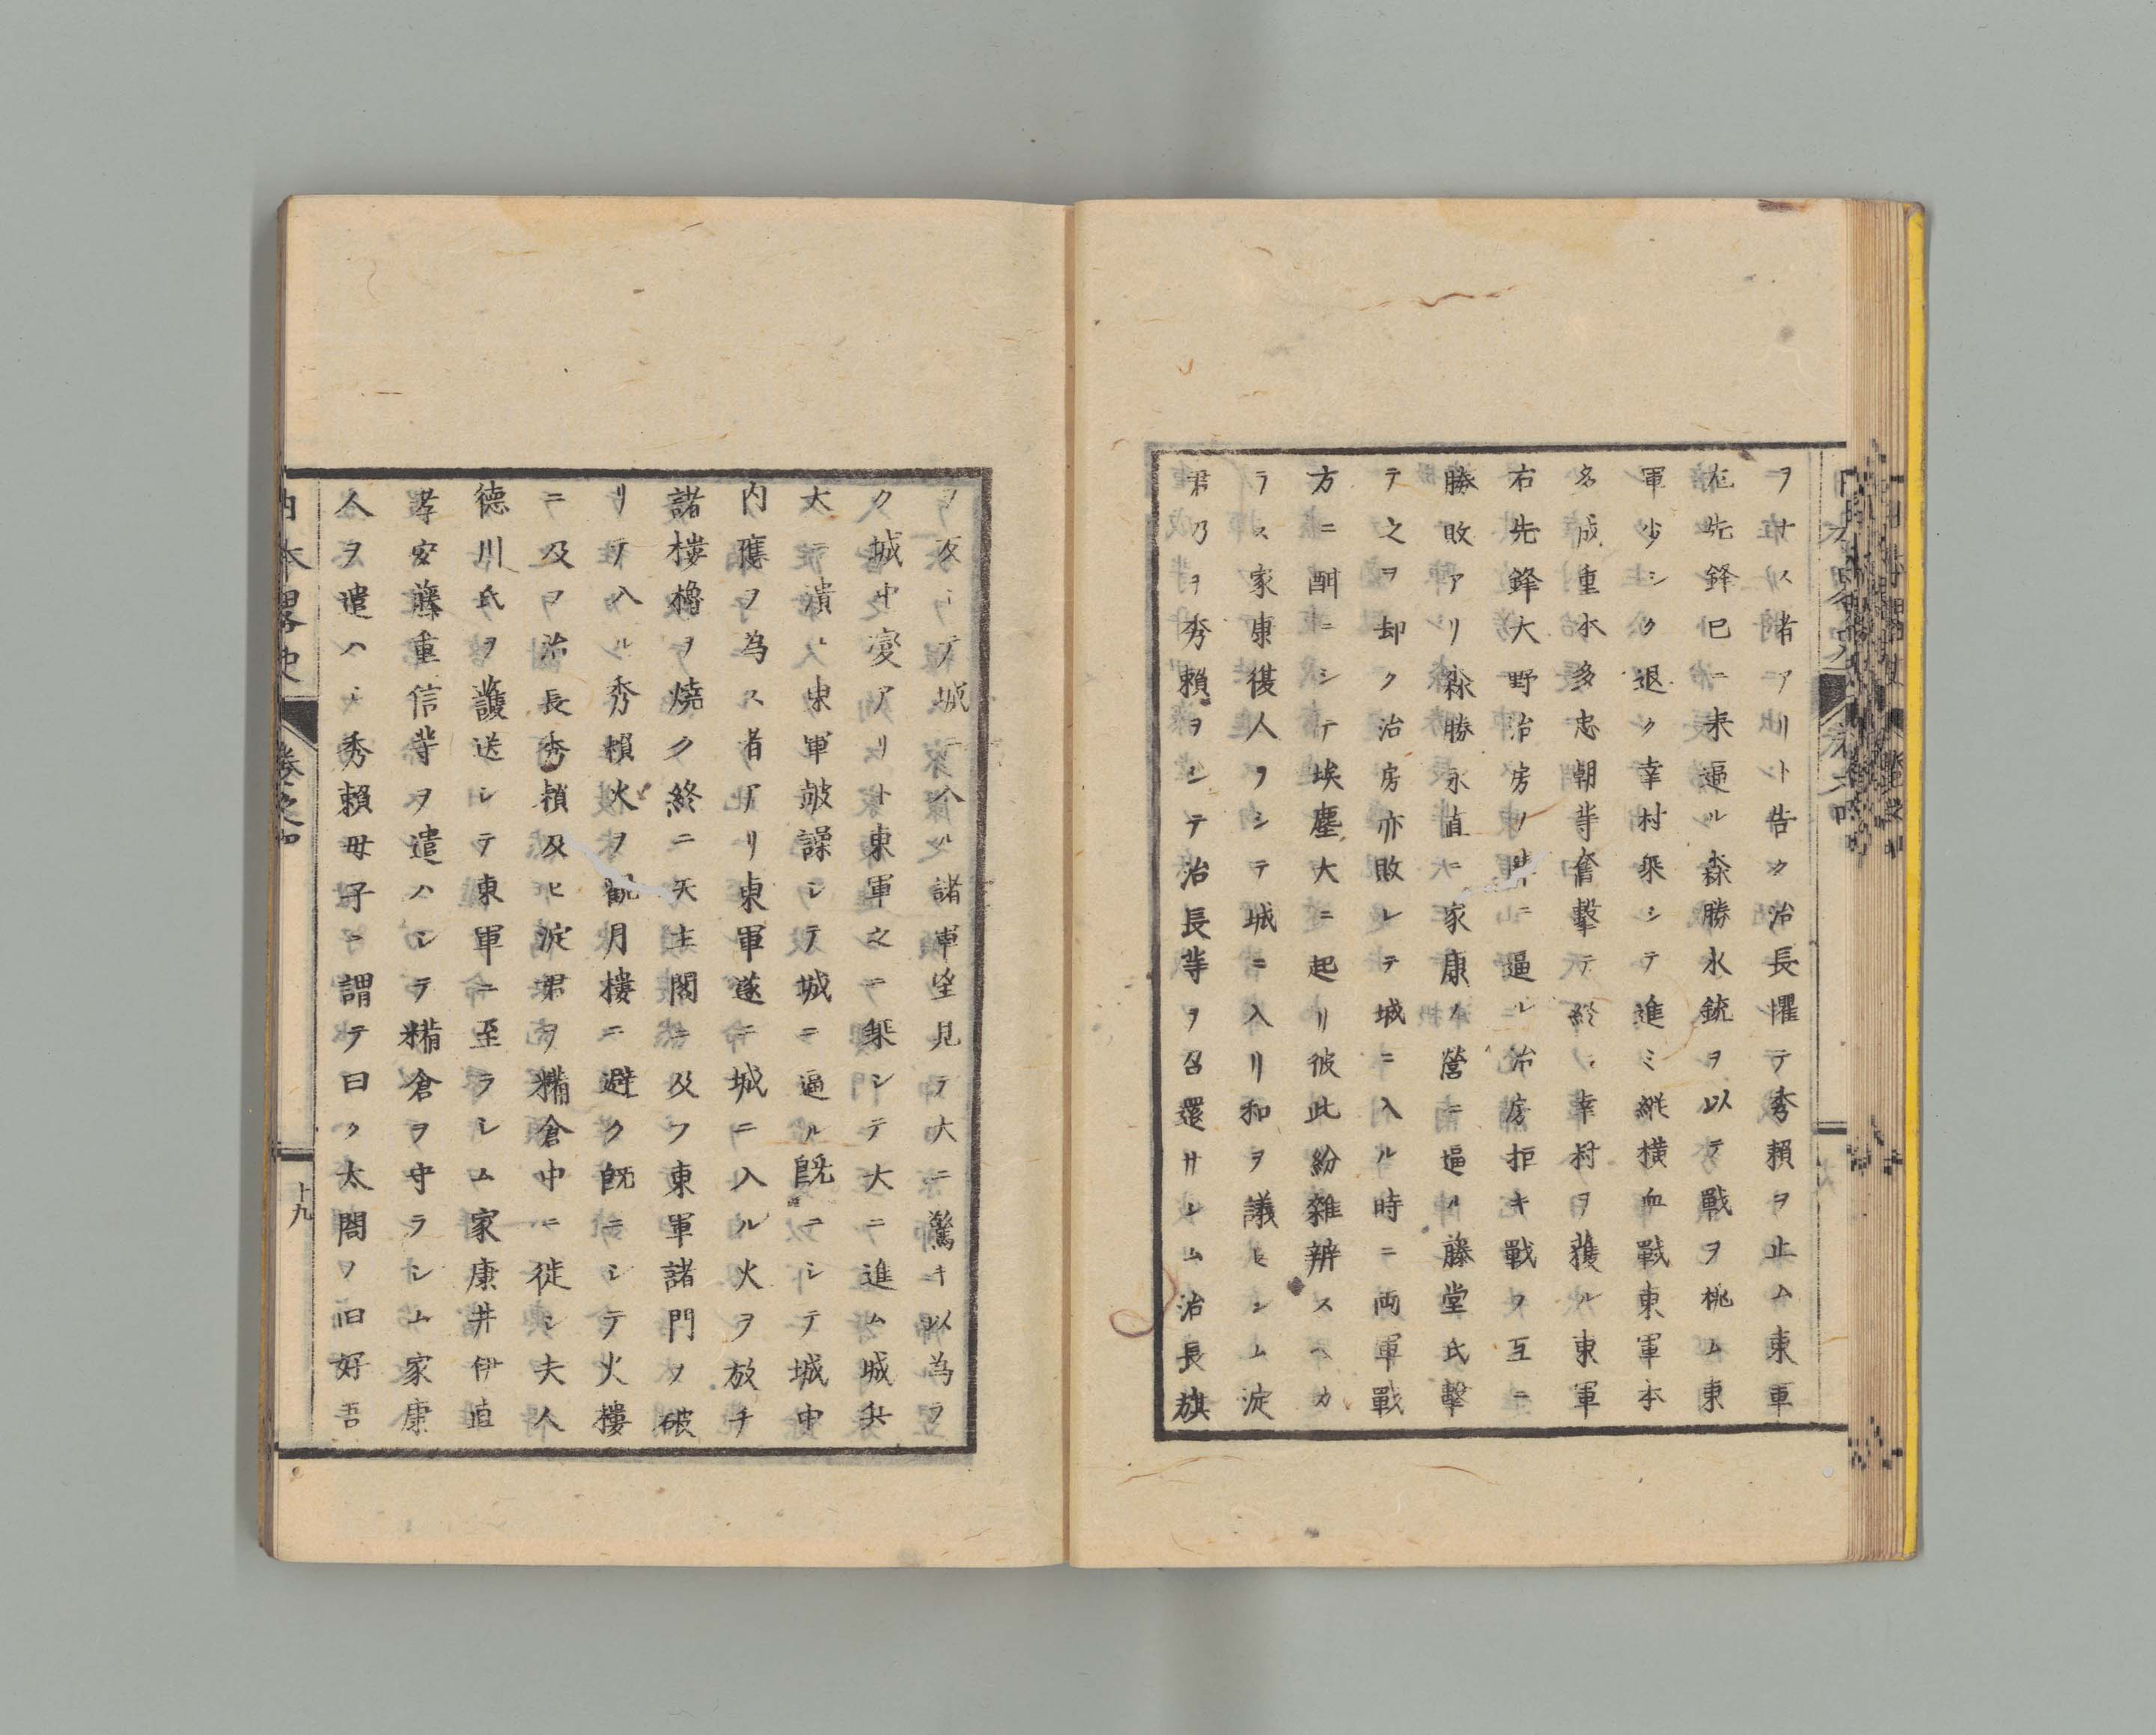 ヲナス者アリト告ク治長懼テ秀賴ヲ止ム東軍
左先鋒巳ニ来逼ル森勝永銃ヲ以テ戰ヲ挑ム東
軍少シク退ク幸村乗シテ進ミ縱横血戰東軍本
多成重本多忠朝等奮擊テ終ニ幸村ヲ獲ル東軍
右先鋒大野治房ノ陣ニ逼ル治房拒キ戰フ互ニ
勝敗アリ森勝永直ニ家康ノ營ニ逼ル藤堂氏擊
テ之ヲ却ク治房亦敗レテ城ニ入ル時ニ両軍戰
方ニ酣ニシテ埃塵大ニ起リ彼此紛雜辨スヘカ
ラス家康復人ヲシテ城ニ入リ和ヲ議セシム淀
君乃ヲ秀賴ヲシテ治長等ヲ召還サシム治長旗
ヲ反シテ城ニ入ル諸軍望見テ大ニ驚キ以為ラ
ク城中變アリト東軍之ニ乗シテ大ニ進ム城兵
大ニ潰ル東軍皷譟シテ城ニ逼ル既ニシテ城中
内應ヲ為ス者アリ東軍遂ニ城ニ入ル火ヲ放チ
諸樓櫓ヲ燒ク終ニ天主閣ニ及フ東軍諸門ヲ破
リテ入ル秀賴火ヲ觀月樓ニ避ク既ニシテ火樓
ニ及フ治長秀賴及ヒ淀君ヲ糒倉中ニ徙シ夫人
德川氏ヲ護送シテ東軍ニ至ラシム家康井伊直
孝安藤重信等ヲ遣ハシテ糒倉ヲ守ラシム家康
人ヲ遣ハシ秀賴母子ニ謂テ曰ク太閤ノ旧好吾
日本畧史 卷之四 十九